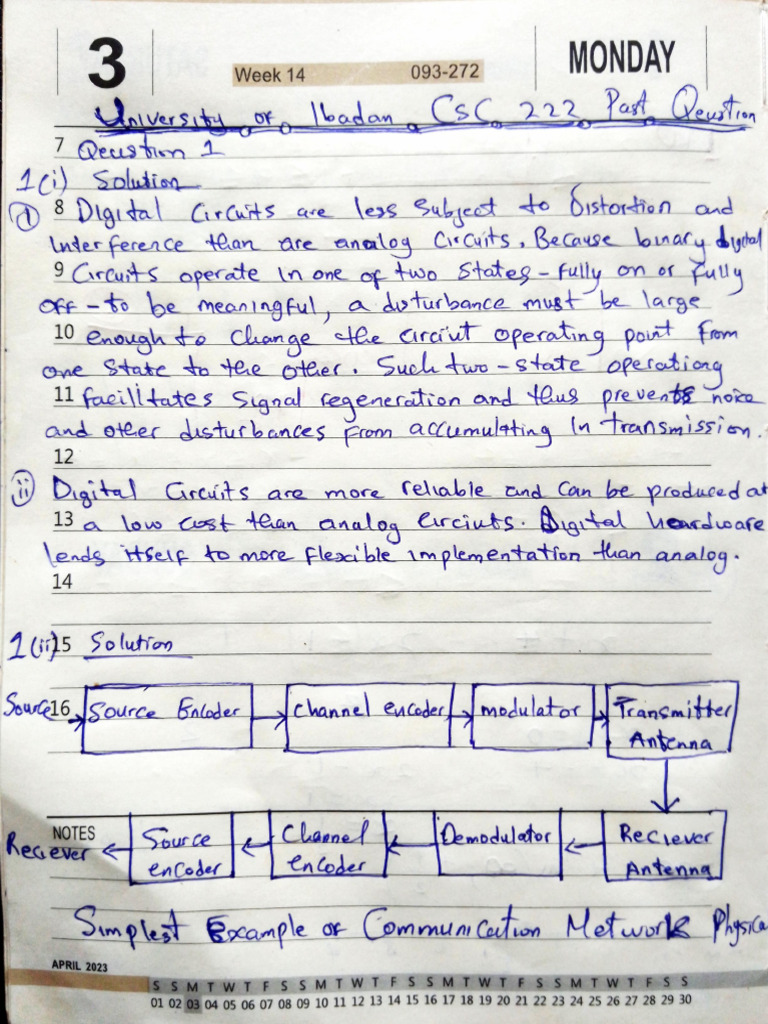 3 Week 14 093-272 MONDAY
University of Ibadan CSC 222 Past Qeustion
7 Qeustion 1
1(i) Solution
(i) 8 Digital Circuits are less Subject to Distortion and
Interference than are analog Circuits. Because binary digital
9 Circuits operate in one of two States - fully on or fully
off - to be meaningful, a disturbance must be large
10 enough to change the circiut operating point from
one State to the other. Such two - state operationg
11 facilitates Signal regeneration and thus prevents noise
and other disturbances from accumulating in transmission.
12
(ii) Digital Circuits are more reliable and can be produced at
13 a low cost than analog Circiuts. Digital heardware
lends itself to more flexible implementation than analog.
14
1(ii) 15 Solution
Source 16 Source Encoder Channel encoder modulator Transmitter
Antenna
NOTES
Reciever Source encoder Channel encoder Demodulator Reciever Antenna
Simplest Example of Communication Network Physica
APRIL 2023
S S M T W T F S S M T W T F S S M T W T F S S M T W T F S S
01 02 03 04 05 06 07 08 09 10 11 12 13 14 15 16 17 18 19 20 21 22 23 24 25 26 27 28 29 30